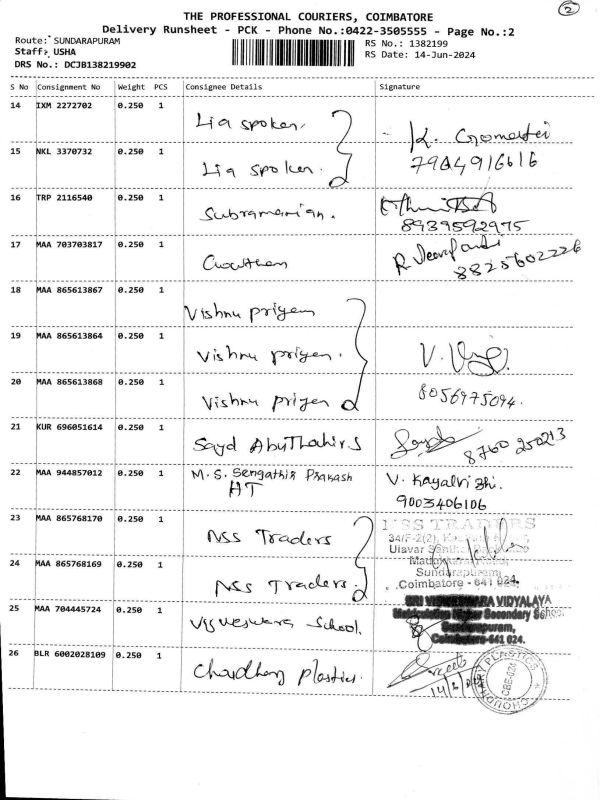 2
THE PROFESSIONAL COURIERS, COIMBATORE
Delivery Runsheet - PCK - Phone No.:0422-3505555 - Page No.:2
Route: SUNDARAPURAM
RS No.: 1382199
Staff: USHA
RS Date: 14-Jun-2024
DRS No.: DCJB138219902
S No Consignment No Weight PCS Consignee Details Signature
14 IXM 2272702 0.250 1 Lia spoken. K. Gomathi
15 NKL 3370732 0.250 1 Lia spoken. 7904916616
16 TRP 2116540 0.250 1 Subramanian. 8939592975
17 MAA 703703817 0.250 1 Gowtham R. 8825602226
18 MAA 865613867 0.250 1 Vishnu priyan
19 MAA 865613864 0.250 1 Vishnu priyan.
20 MAA 865613868 0.250 1 Vishnu priyan 8056975094.
21 KUR 696051614 0.250 1 Sayd AbuThahir S 8760 250213
22 MAA 944857012 0.250 1 M.S. Sengathir Prakash V. Kayalvizhi.
HT 9003406106
23 MAA 865768170 0.250 1 NSS Traders NSS TRADERS
34/F-2(2),
Ulavar
24 MAA 865768169 0.250 1 NSS Traders.
Sundarapuram,
Coimbatore - 641 024.
25 MAA 704445724 0.250 1 Visweswara School. SRI VISWESWARA VIDYALAYA
Matriculation Higher Secondary School
Sundarapuram,
Coimbatore-641 024.
26 BLR 6002028109 0.250 1 Choudhary Plastics.
CHOUDHARY PLASTICS
CBE-024